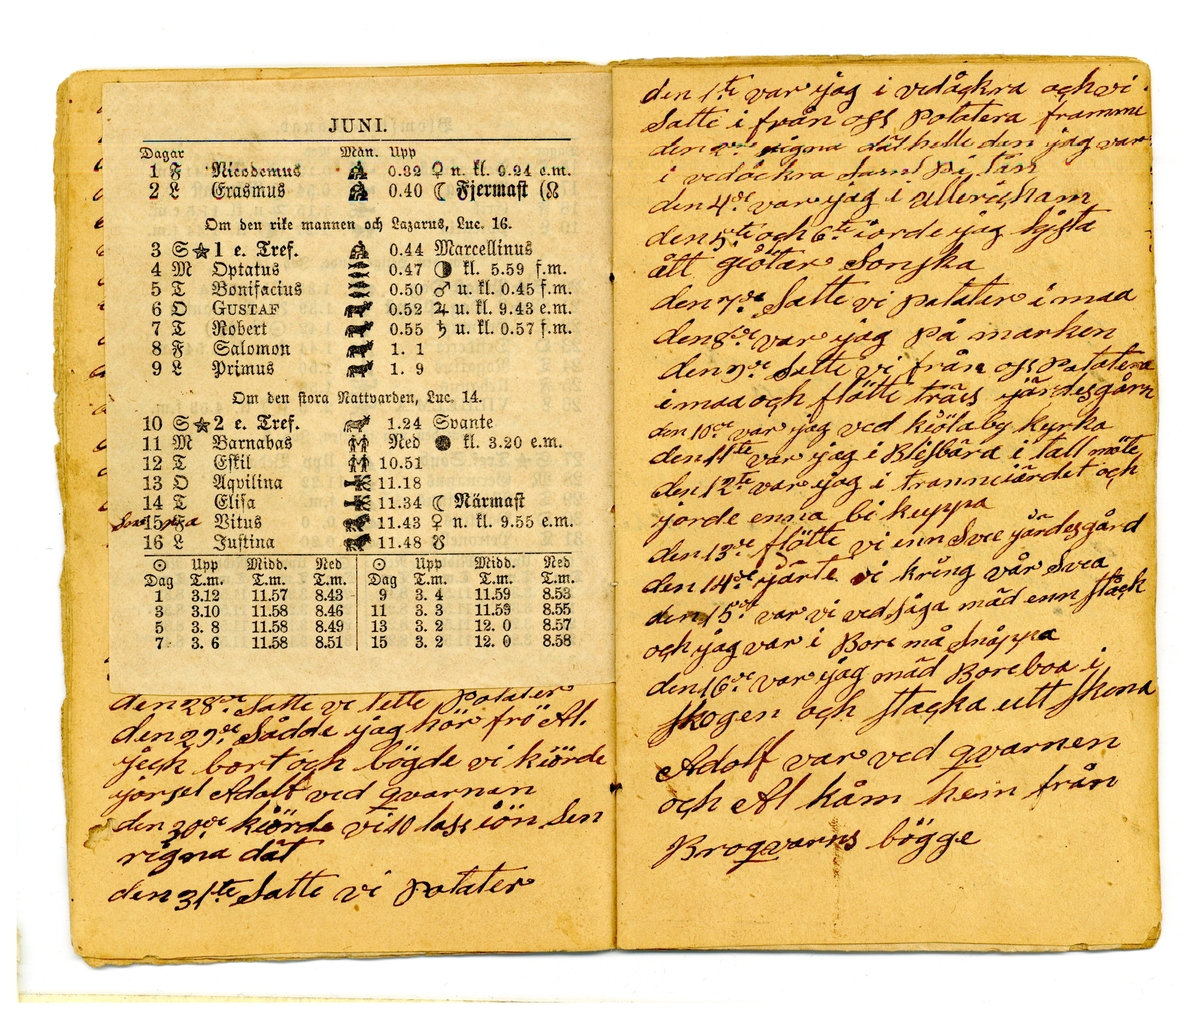 JUNI.
Dagar Mån. Upp
1 F Nicodemus 0.32 ♀ n. kl. 9.24 e.m.
2 L Erasmus 0.40 ☾ Fjermast (☊
Om den rike mannen och Lazarus, Luc. 16.
3 S ★ 1 e. Tref. 0.44 Marcellinus
4 M Optatus 0.47 ◑ kl. 5.59 f.m.
5 T Bonifacius 0.50 ♂ u. kl. 0.45 f.m.
6 O GUSTAF 0.52 ♃ u. kl. 9.43 e.m.
7 T Robert 0.55 ♄ u. kl. 0.57 f.m.
8 F Salomon 1. 1
9 L Primus 1. 9
Om den stora Nattvarden, Luc. 14.
10 S ★ 2 e. Tref. 1.24 Svante
11 M Barnabas Ned ● kl. 3.20 e.m.
12 T Eskil 10.51
13 O Aqvilina 11.18
14 T Elisa 11.34 ☾ Närmast
15 F Vitus 11.43 ♀ n. kl. 9.55 e.m.
16 L Justina 11.48 ☋
☉ Upp Midd. Ned ☉ Upp Midd. Ned
Dag T.m. T.m. T.m. Dag T.m. T.m. T.m.
1 3.12 11.57 8.43 9 3. 4 11.59 8.53
3 3.10 11.58 8.46 11 3. 3 11.59 8.55
5 3. 8 11.58 8.49 13 3. 2 12. 0 8.57
7 3. 6 11.58 8.51 15 3. 2 12. 0 8.58
den 28de Satte vi lette Potater
den 29de Sådde jag hör frö Al.
jeck bort och bögde vi kiörde
jorsel Adolf ved qvarnen
den 30de kiörde vi 10 lass iön Sen
rigna dät
den 31te Satte vi Potater
den 1te var jag i vedåckra och vi
Satte i från oss Potatera framme
den 2de rigna dät helle den jag var
i vedåckra samt
den 4de var jag i Ullericham
den 5te och 6te iorde jag
ått giötar Sonska
den 7de Satte vi Potater i maa
den 8de var jag på marken
den 9de Satte vi från oss Potatera
i maa och flötte träis järdesgårn
den 10de var jag ved kiölaby kyrka
den 11te var jag i Blisbära i tall möte
den 12te var jag i tranniärdet och
jorde enna bi kuppa
den 13de flötte vi enn Svee järdesgård
den 14de järte vi kring vår Svea
den 15de var vi ved såga mäd enn ståck
och jag var i Bore må Snåppa
den 16de var jag mäd Boreboa i
skogen och stacka utt skona
Adolf var ved qvarnen
och Al kåm hem från
Broqvarns bögge